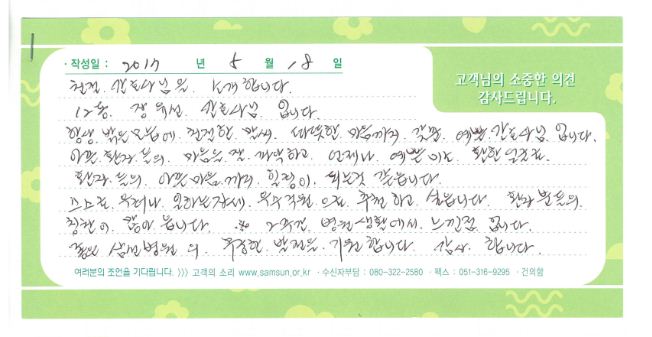 · 작성일 : 2017 년 5 월 18 일
고객님의 소중한 의견
감사드립니다.
친절 간호사님을 소개합니다.
12층. 장유선. 간호사님 입니다.
항상 밝은 모습에 친절한 맘씨. 따뜻한 마음까지. 갖춘. 예쁜 간호사님 입니다.
아픈 환자들의. 마음을 잘. 파악하고. 언제나 예쁜 미소 환한 얼굴로.
환자들의 아픈마음까지 힐링이. 되는것 같습니다.
스스로 우러나 일하는자세. 우수직원으로. 추천하고. 싶습니다. 환자분들의
칭찬이 많아 봅니다. 2주간. 병원생활에서. 느낀점 입니다.
좋은 삼선병원의. 무궁한 발전을. 기원합니다. 감사. 합니다.
여러분의 조언을 기다립니다. >>> 고객의 소리 www.samsun.or.kr · 수신자부담 : 080-322-2580 · 팩스 : 051-316-9295 · 건의함